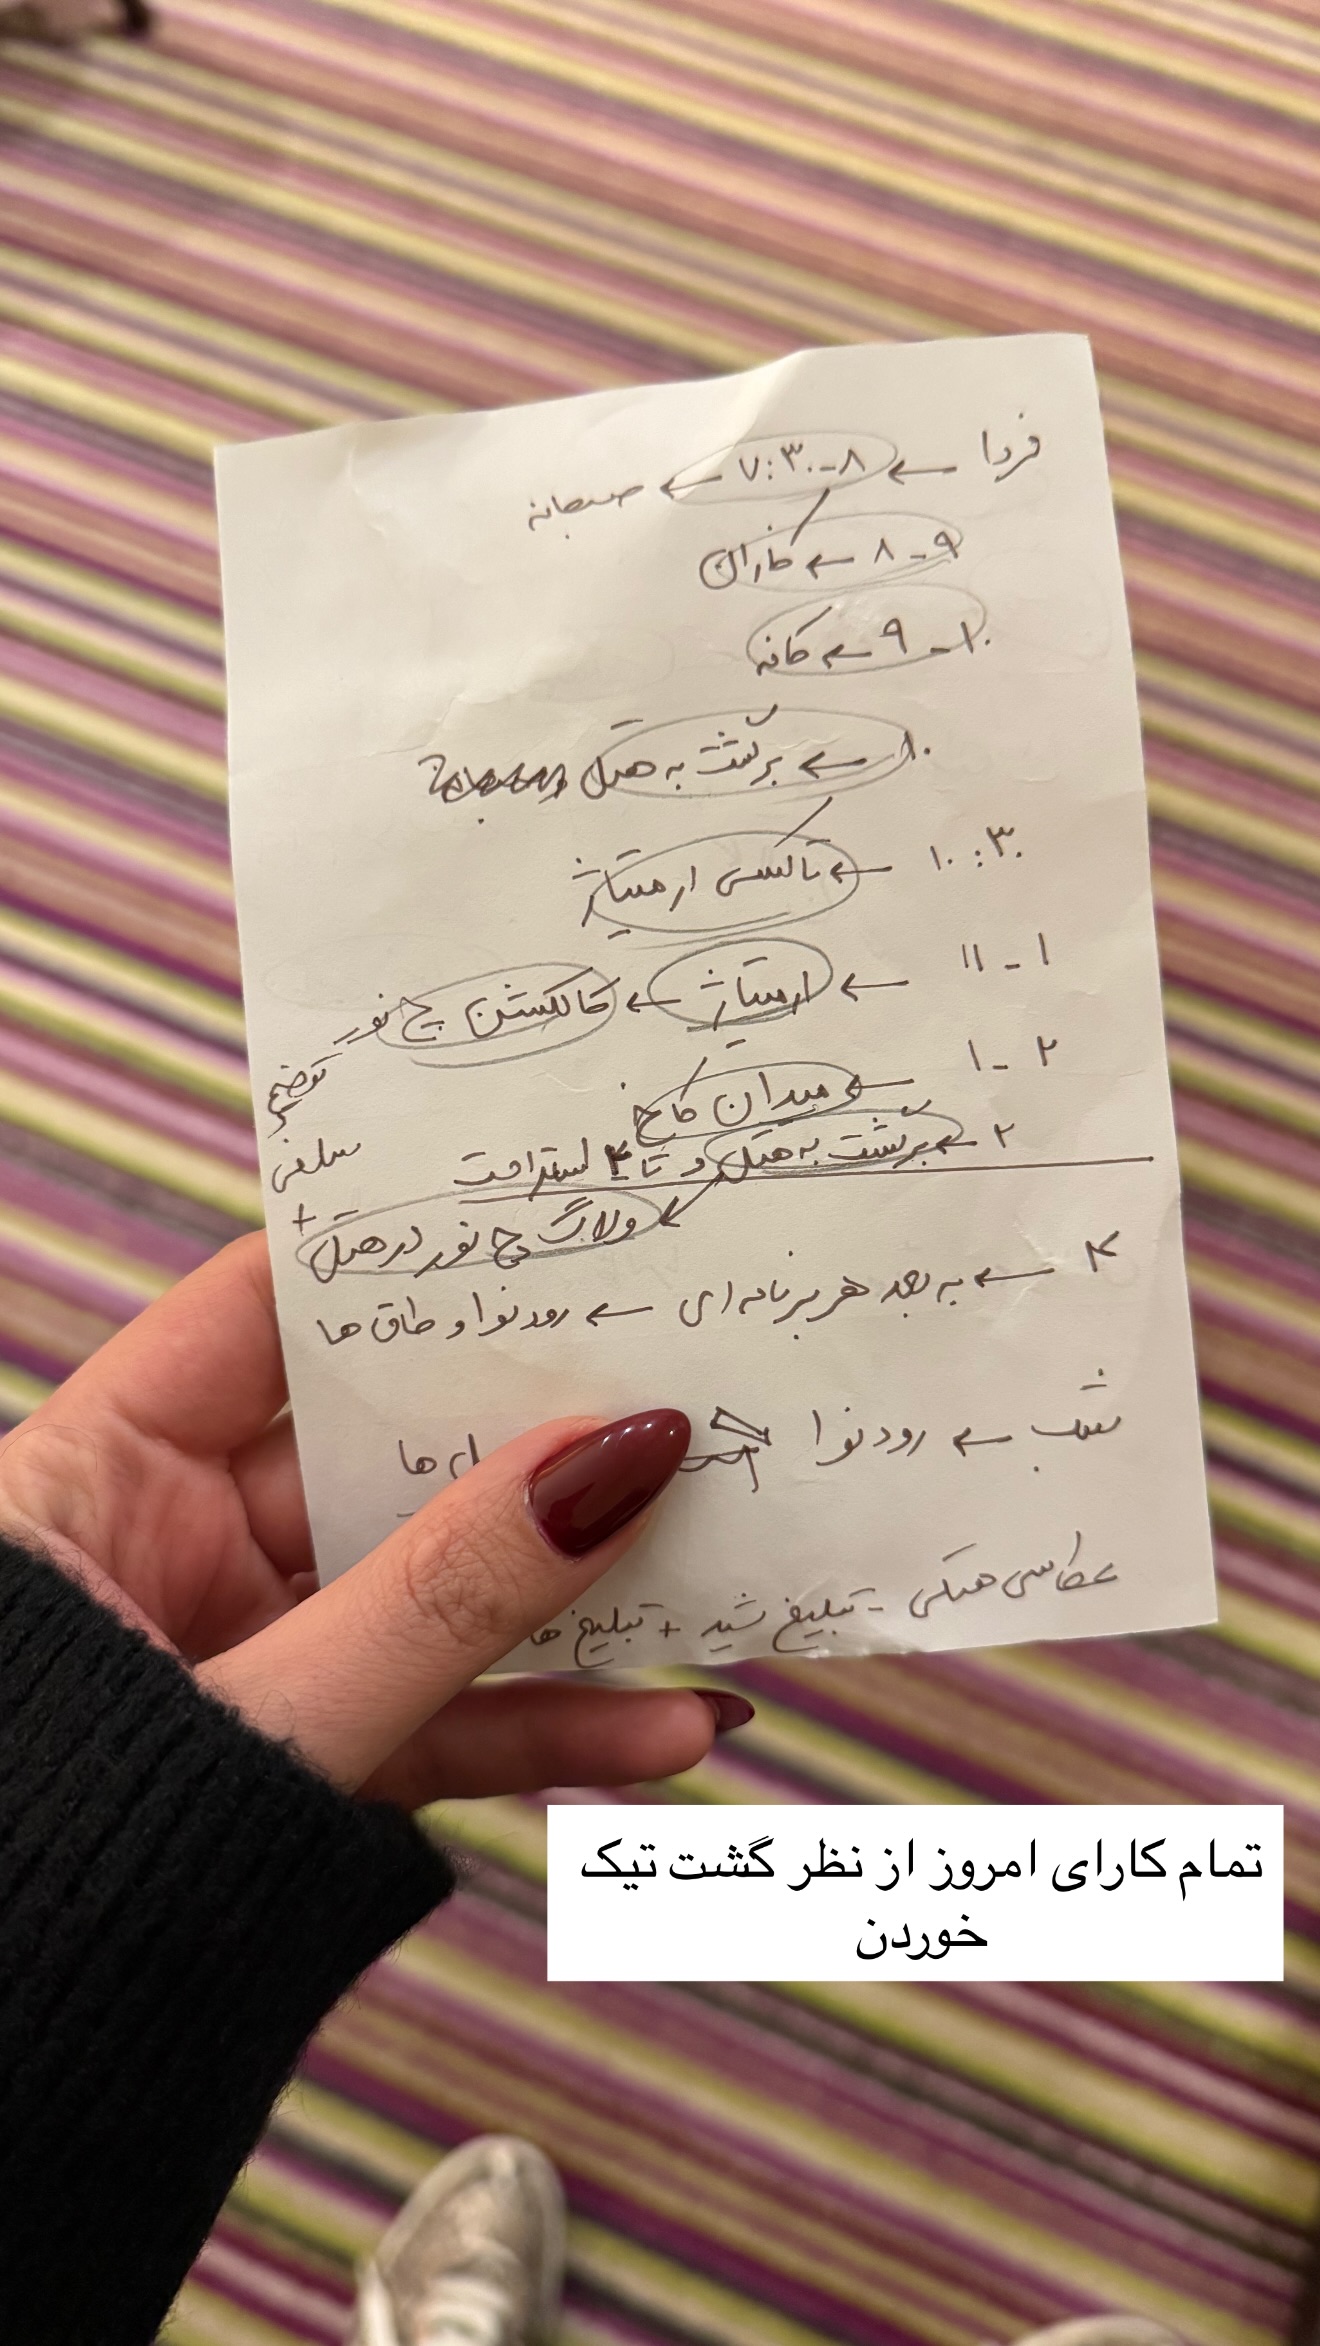 فردا ← ۷:۳۰-۸ ← صبحانه
۸-۹ ← کازان
۹-۱۰ ← کافه
۱۰ ← برگشت به هتل
۱۰:۳۰ ← تاکسی ارمیتاژ
۱۱-۱ ← ارمیتاژ ← کالکشن چ نور
توضیح
سلفی
+
۱-۲ ← میدان کاخ
۲ ← برگشت به هتل و تا ۴ استراحت
ولاگ چ نور در هتل
۴ ← به بعد هر برنامه ای ← رود نوا و طاق ها
شب ← رود نوا
ها
عکاسی هتلی - تبلیغ شید + تبلیغ ها
تمام کارای امروز از نظر گشت تیک
خوردن